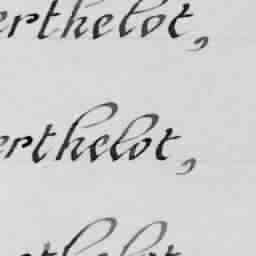 erthelot,
erthelot,